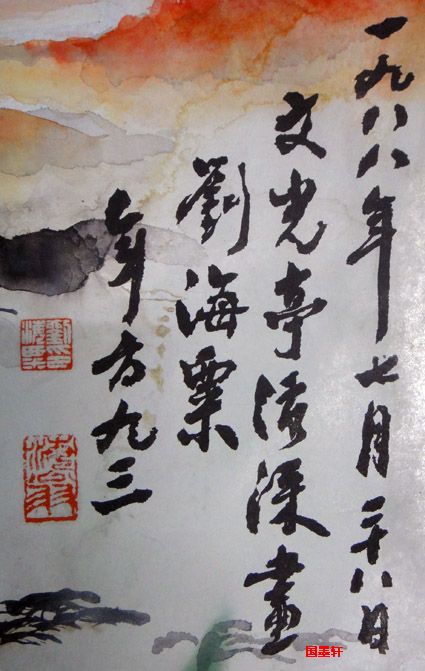 一九八八年七月二十八日
文光亭深畫
劉海粟
年方九三
国墨轩